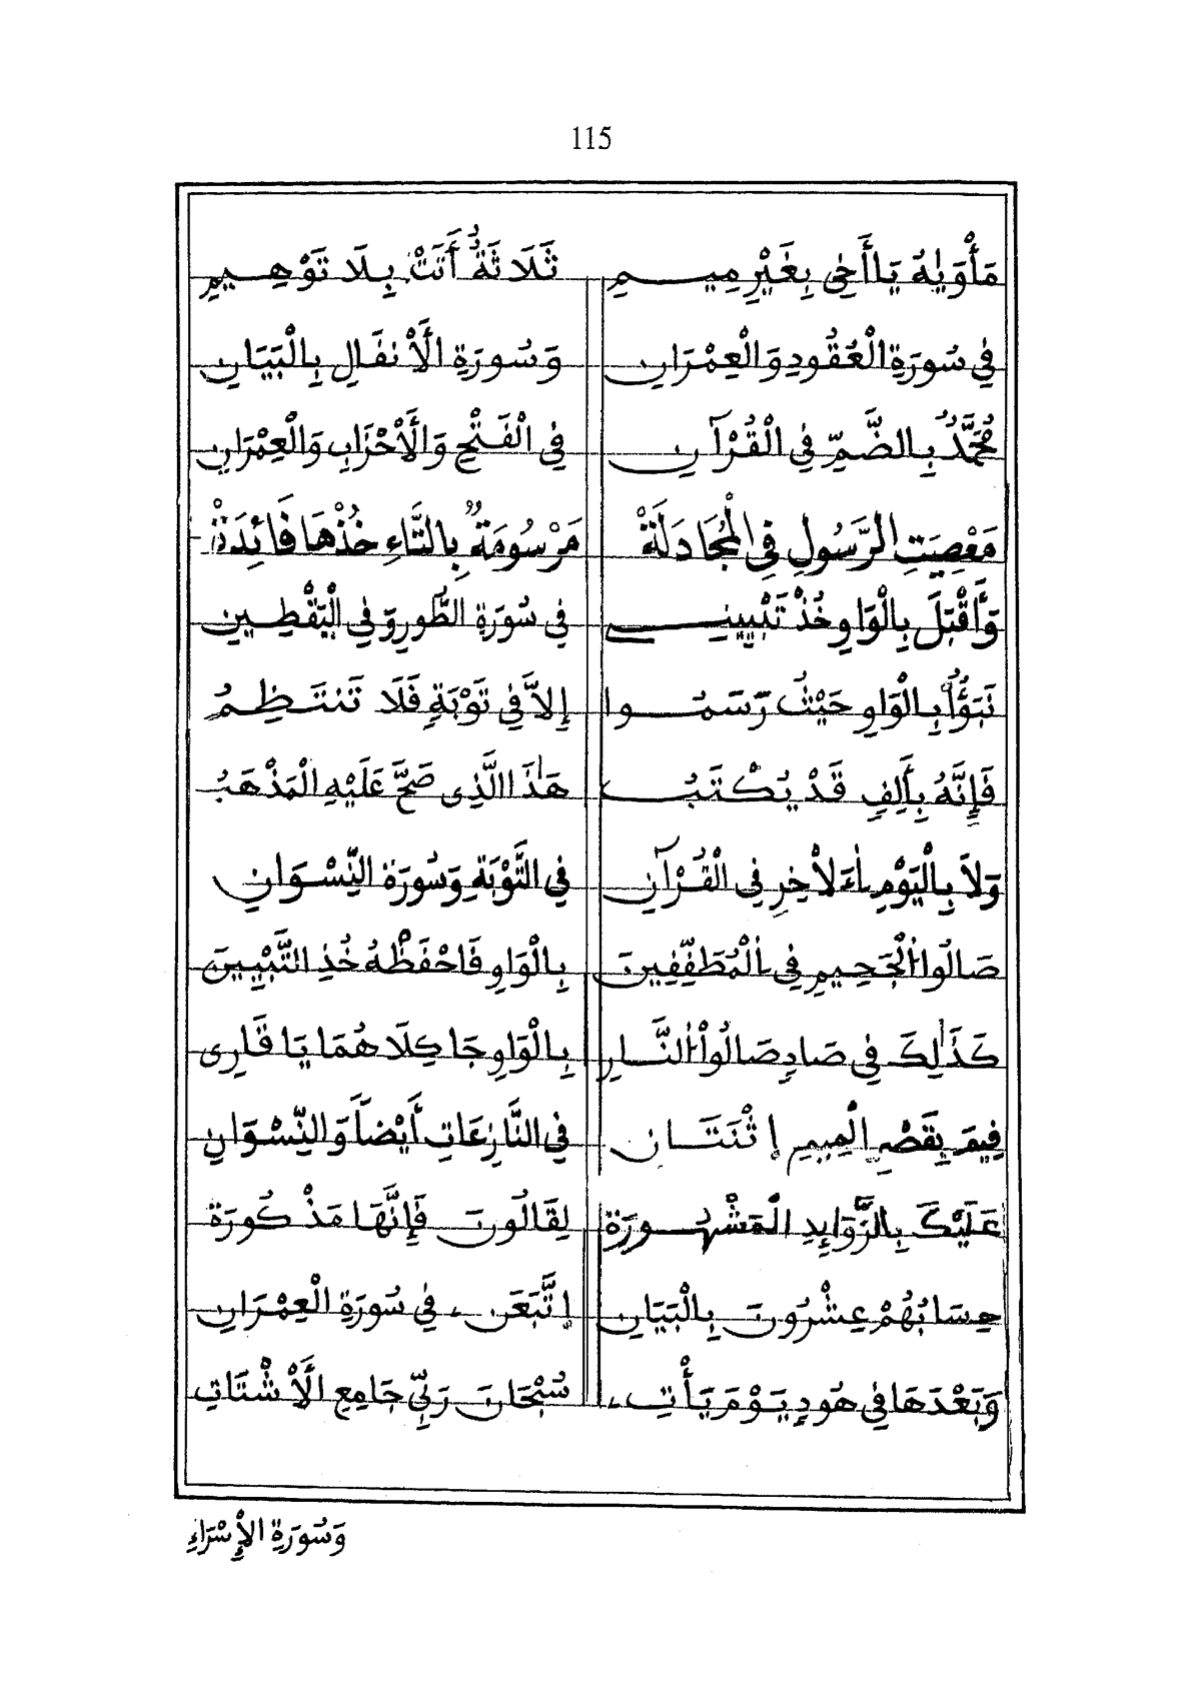 115
مَأْوَيٰهُ يَاأَخِى بِغَيْرِ مِيــمِ ثَلَاثَةٌ أَتَتْ بِلَا تَوْهِيمِ
فِى سُورَةِ الْعُقُودِ وَالْعِمْرَانِ وَسُورَةِ الْأَنْفَالِ بِالْبَيَانِ
مُحَمَّدٌ بِالضَّمِّ فِى الْقُرْآنِ فِى الْفَتْحِ وَالْأَحْزَابِ وَالْعِمْرَانِ
مَعْصِيَتِ الرَّسُولِ فِى الْمُجَادَلَةْ مَرْسُومَةٌ بِالتَّاءِ خُذْهَا فَائِدَةْ
وَأَقْبَلَ بِالْوَاوِ خُذْ تَبْيِينِــى فِى سُورَةِ الطُّورِ وَفِى الْيَقْطِينِ
نَبَؤُاْ بِالْوَاوِ حَيْثُ رَسَمُــوا إِلاَّ فِى تَوْبَةٍ فَلَا تَنتَظِمُ
فَإِنَّهُ بِأَلِفِ قَدْ يُكْتَبُ هَٰذَا الَّذِى صَحَّ عَلَيْهِ الْمَذْهَبُ
وَلَا بِالْيَوْمِ اءَلْأخِرِ فِى الْقُرْآنِ فِى التَّوْبَةِ وَسُورَةِ النِّسْوَانِ
صَالُواْ الْجَحِيمِ فِى الْمُطَفِّفِينَ بِالْوَاوِ فَاحْفَظْهُ خُذِ التَّبْيِينَ
كَذَٰلِكَ فِى صَادٍ صَالُواْ النَّــارِ بِالْوَاوِ جَا كِلَاهُمَا يَا قَارِى
فِيمَ بِنَقْصِ الْمِيمِ إثْنَتَــانِ فِى النَّازِعَاتِ أَيْضاً وَالنِّسْوَانِ
عَلَيْكَ بِالزَّوَايِدِ الْمَشْهُــورَةْ لِقَالُونَ فَإِنَّهَا مَذْكُورَةْ
حِسَابُهُمْ عِشْرُونَ بِالْبَيَانِ إتَّبَعَنِۦ فِى سُورَةِ الْعِمْرَانِ
وَبَعْدَهَا فِى هُودٍ يَوْمَ يَأْتِۦ سُبْحَانَ رَبِّى جَامِعِ الْأَشْتَاتِ
وَسُورَةِ الْإِسْرَاءِ